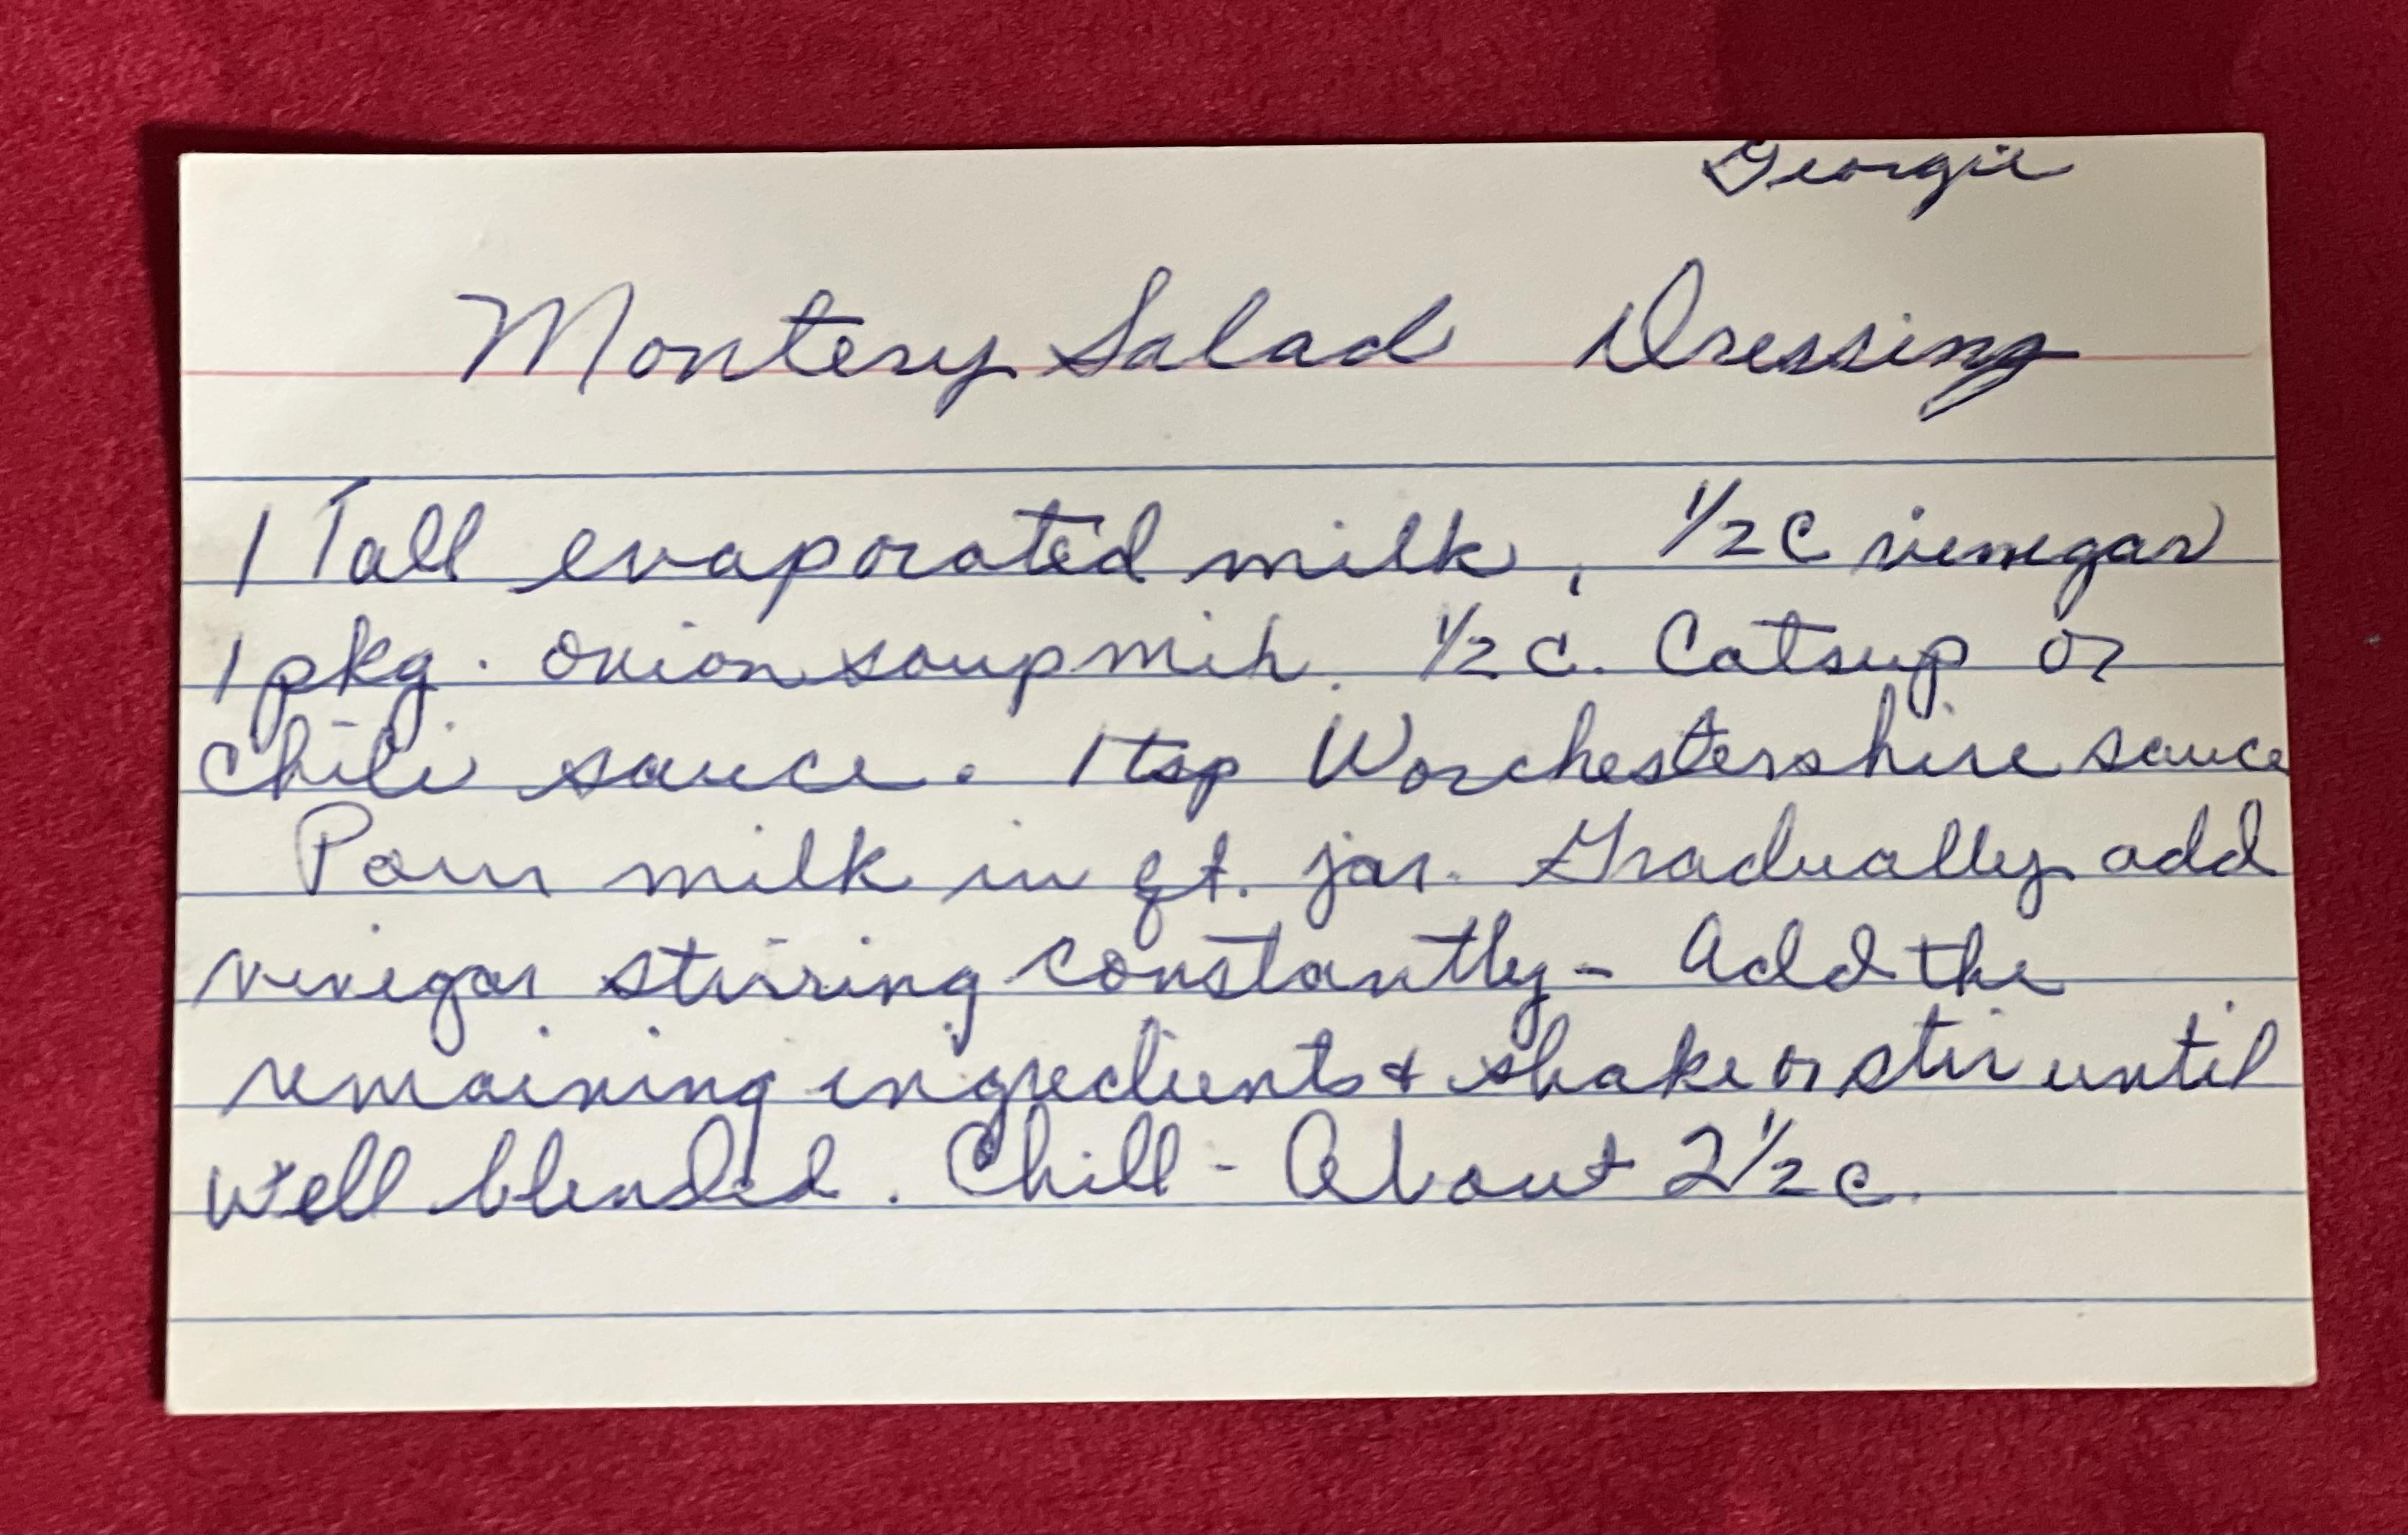 Georgie
Montery Salad Dressing
1 Tall evaporated milk, 1/2 c vinegar
1 pkg. onion soup mix. 1/2 c. Catsup or
chili sauce. 1 tsp Worchestershire sauce
Pour milk in qt. jar. Gradually add
vinegar stirring constantly - Add the
remaining ingredients & shake or stir until
well blended. Chill - About 2 1/2 c.